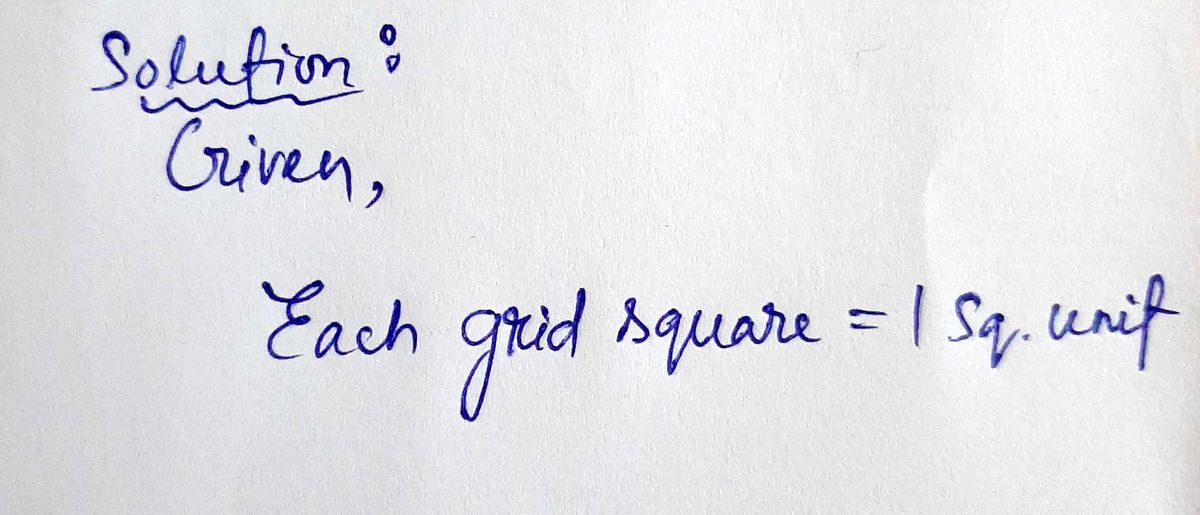 Solution:
Given,
Each grid square = 1 Sq. unit